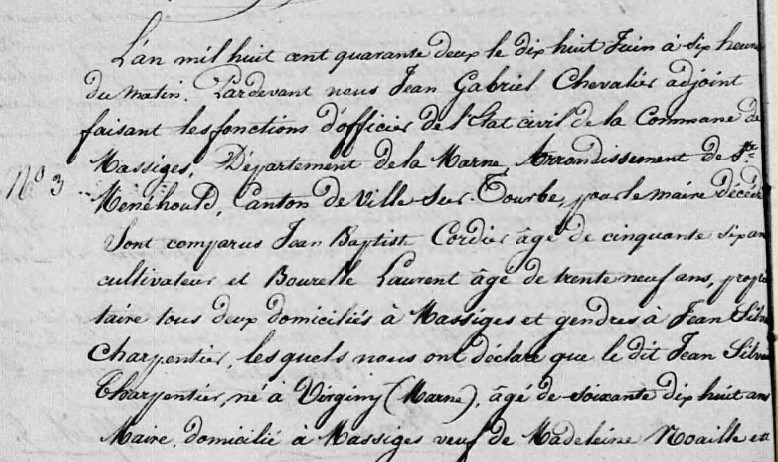 L'an mil huit cent quarante deux le dix huit Juin à six heures
du matin. Pardevant nous Jean Gabriel Chevalier adjoint
faisant les fonctions d'officier de l'Etat civil de la Commune de
Massiges, Département de la Marne, Arrondissement de Ste
N° 3 Menéhould, Canton de Ville-Sur-Tourbe, pour le maire décédé
Sont comparus Jean Baptiste Cordier âgé de cinquante six ans
cultivateur et Bourelle Laurent âgé de trente neuf ans, proprié
taire tous deux domiciliés à Massiges et gendres à Jean Silv
Charpentier, lesquels nous ont déclaré que le dit Jean Silv
Charpentier, né à Virginy (Marne), âgé de soixante dix huit ans
Maire, domicilié à Massiges veuf de Madeleine Noaille est